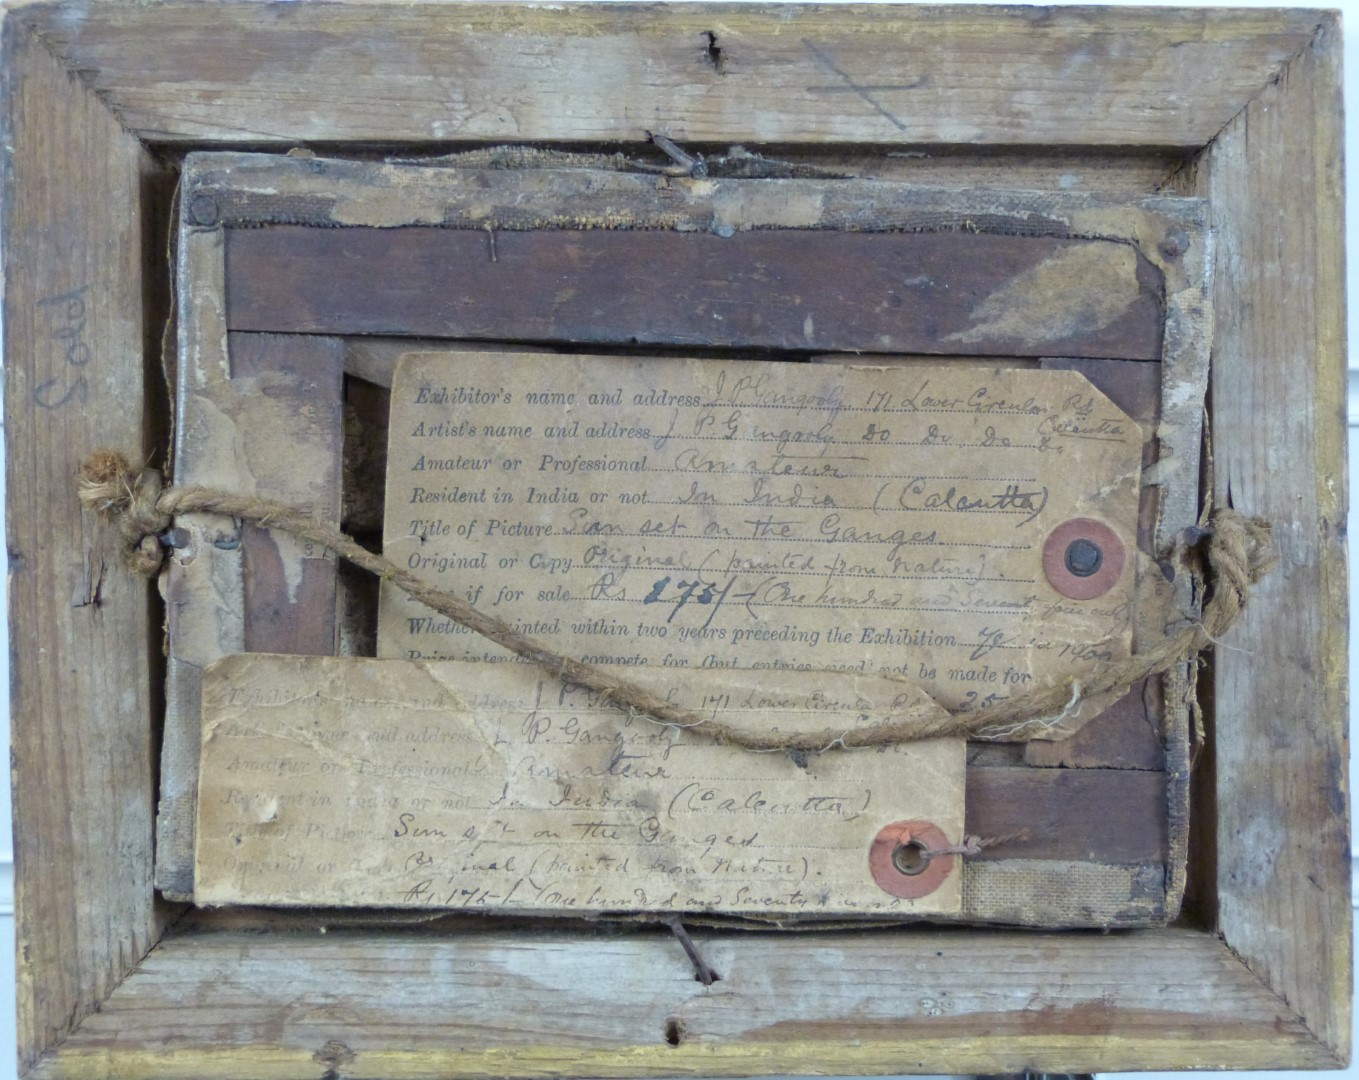 Sold
Exhibitor's name and address J P Gangooly 171 Lower Circular Rd
Calcutta
Artist's name and address J P Gangooly Do Do Do Do
Amateur or Professional Amateur
Resident in India or not In India (Calcutta)
Title of Picture Sun set on the Ganges
Original or Copy Original (painted from Nature).
if for sale Rs 175/- (One hundred and Seventy five only
Whether painted within two years preceding the Exhibition in
compete for (but entries need not be made for
Exhibitor's name and address J P. Gangooly 171 Lower Circular Rd 25
and address J. P. Gangooly
Amateur or Professional Amateur
Resident in India or not In India (Calcutta)
Title of Picture Sun set on the Ganges
Original or Original (painted from Nature).
Rs 175/- (One hundred and Seventy